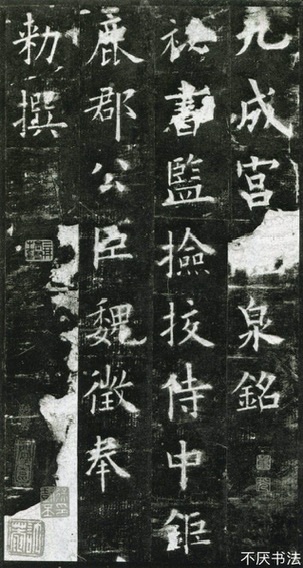 九成宮泉銘
祕書監撿挍侍中鉅
鹿郡公臣魏徵奉
勑撰
不厌书法